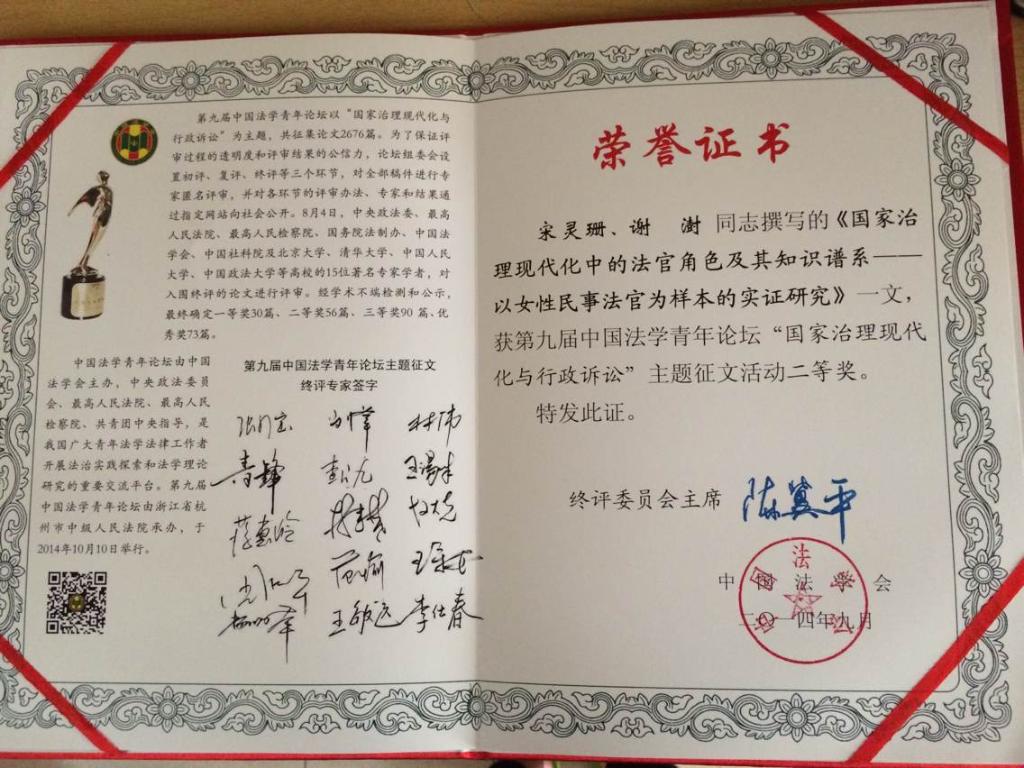 第九届中国法学青年论坛以“国家治理现代化与
行政诉讼”为主题，共征集论文2676篇。为了保证评
审过程的透明度和评审结果的公信力，论坛组委会设
置初评、复评、终评等三个环节，对全部稿件进行专
家匿名评审，并对各环节的评审办法、专家和结果通
过指定网站向社会公开。8月4日，中央政法委、最高
人民法院、最高人民检察院、国务院法制办、中国法
学会、中国社科院及北京大学、清华大学、中国人民
大学、中国政法大学等高校的15位著名专家学者，对
入围终评的论文进行评审。经学术不端检测和公示，
最终确定一等奖30篇、二等奖56篇、三等奖90篇、优
秀奖73篇。
中国法学青年论坛由中国
法学会主办，中央政法委员
会、最高人民法院、最高人民
检察院、共青团中央指导，是
我国广大青年法学法律工作者
开展法治实践探索和法学理论
研究的重要交流平台。第九届
中国法学青年论坛由浙江省杭
州市中级人民法院承办，于
2014年10月10日举行。
第九届中国法学青年论坛主题征文
终评专家签字
林伟
青锋
王敏远
李仕春
荣誉证书
宋灵珊、谢 澍 同志撰写的《国家治
理现代化中的法官角色及其知识谱系——
以女性民事法官为样本的实证研究》一文，
获第九届中国法学青年论坛“国家治理现代
化与行政诉讼”主题征文活动二等奖。
特发此证。
终评委员会主席 陈冀平
中国法学会
二〇一四年九月